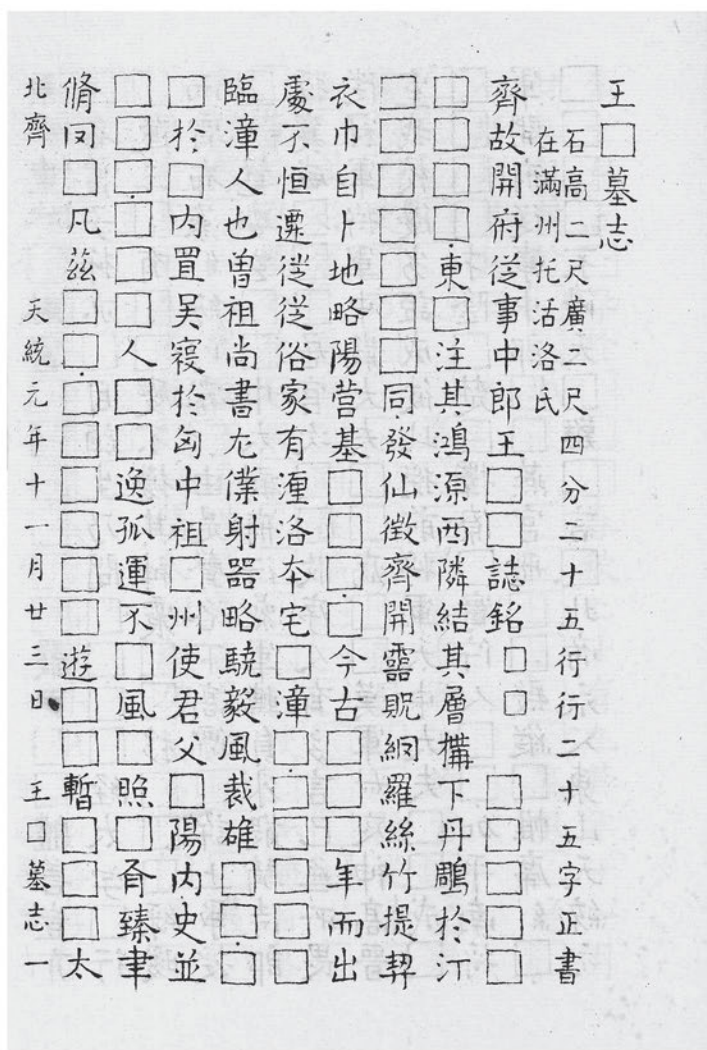 王□墓志
石高二尺廣二尺四分二十五行行二十五字正書
在滿州托活洛氏
齊故開府從事中郎王□□誌銘□□　□□□□□
□□□□東□注其鴻源西隣結其層構下丹鵰於汀
□□□□□□□同發仙徵齊開靈貺網羅絲竹提挈
衣巾自卜地略陽營基□□□□今古□□□年而出
處不恒遷從從俗家有湮洛本宅□漳□□□□□□
臨漳人也曾祖尚書左僕射器略驍毅風裁雄□□□
□於□内置吳寢於匈中祖□州使君父□陽内史並
□□□□□□人□□逸孤運不□風□照□胥臻聿
脩罔□凡茲□□□□□□□□遊□□暫□□□太
北齊　天統元年十一月廿三日　王□墓志一